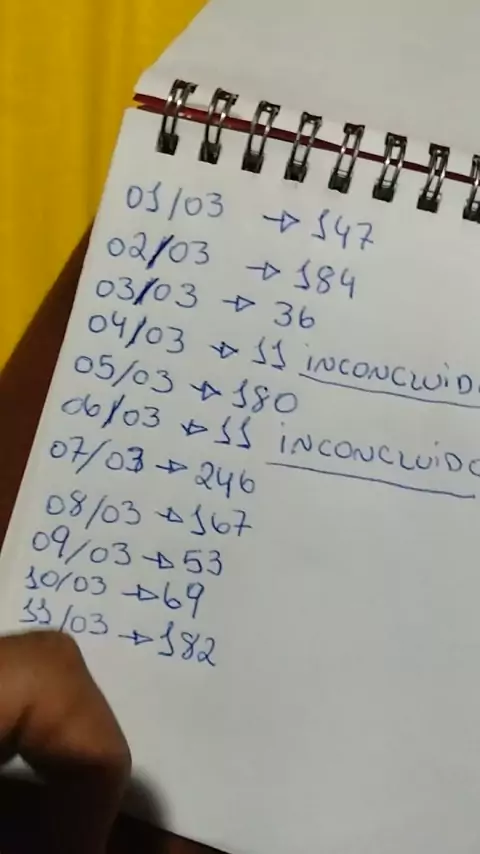 01/03 → 147
02/03 → 184
03/03 → 36
04/03 → 11 INCONCLUÍD
05/03 → 180
06/03 → 11 INCONCLUIDO
07/03 → 246
08/03 → 167
09/03 → 53
10/03 → 69
11/03 → 182